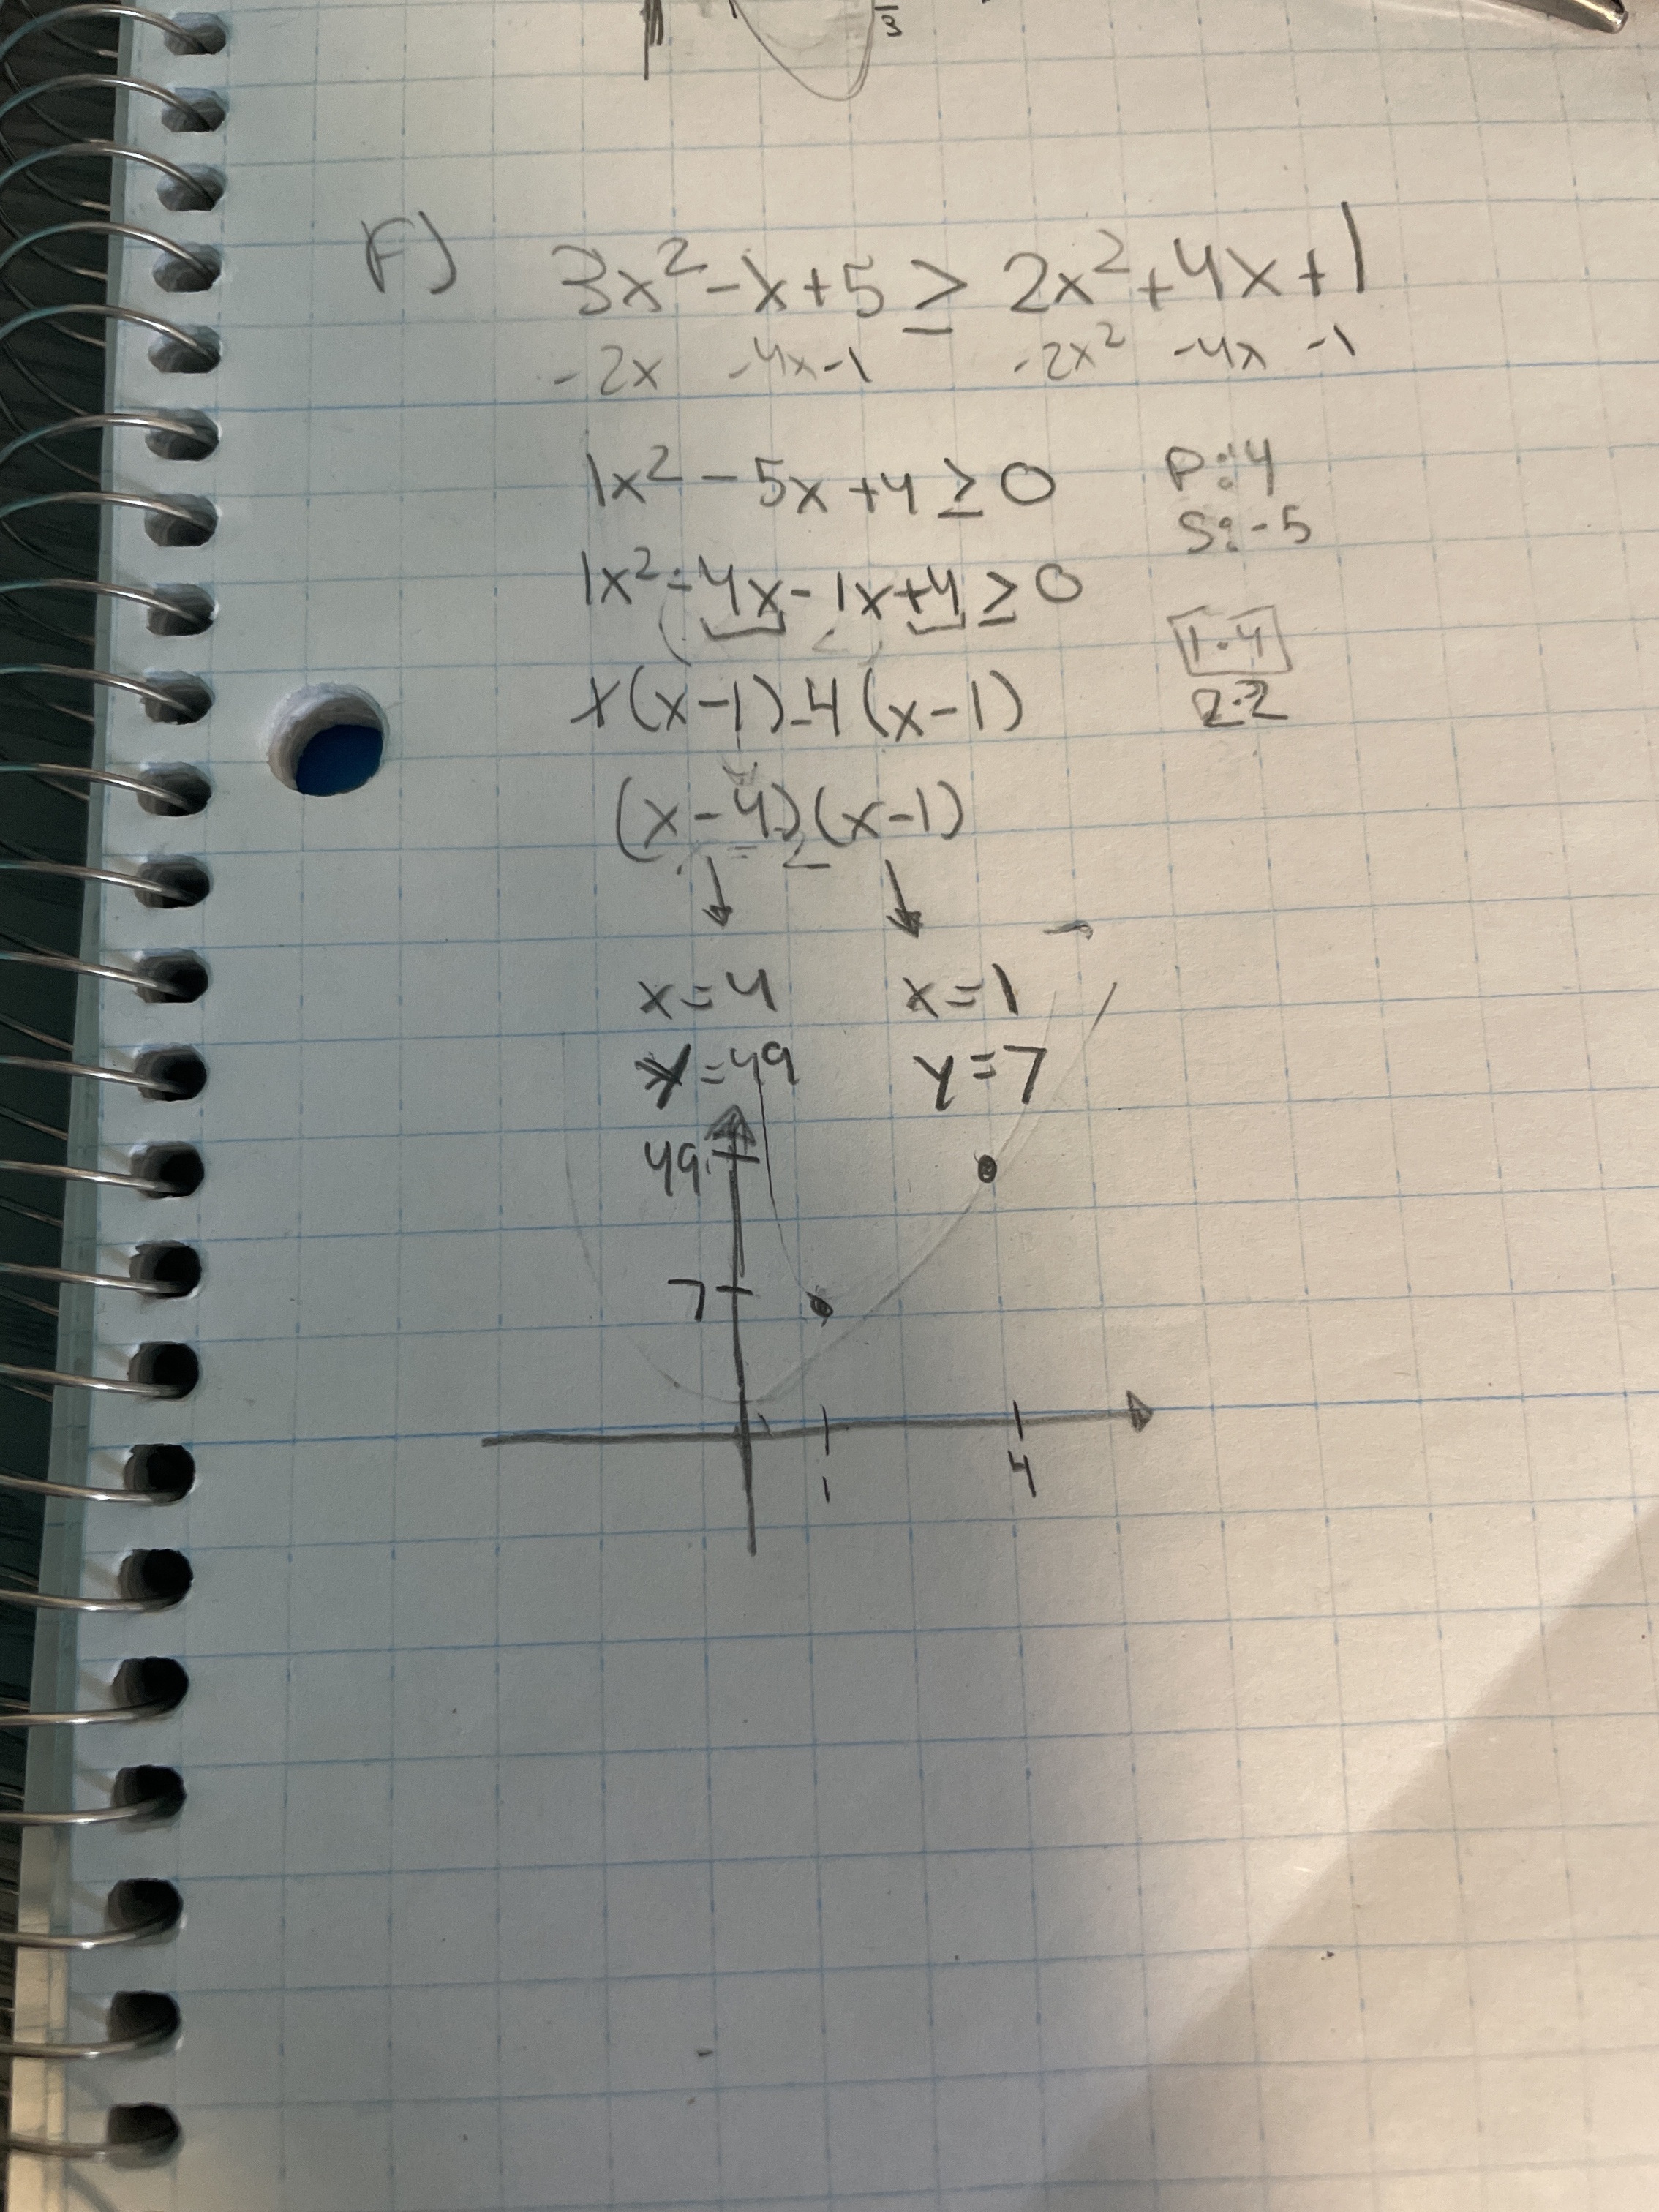 3
F) 3x² - x + 5 ≥ 2x² + 4x + 1
-2x -4x -1 -2x² -4x -1
1x² - 5x + 4 ≥ 0 P: 4
S: -5
1x² - 4x - 1x + 4 ≥ 0
1·4
x(x-1) -4(x-1)
2·2
(x-4)(x-1)
x=4 x=1
y=49 y=7
49
7
1 4